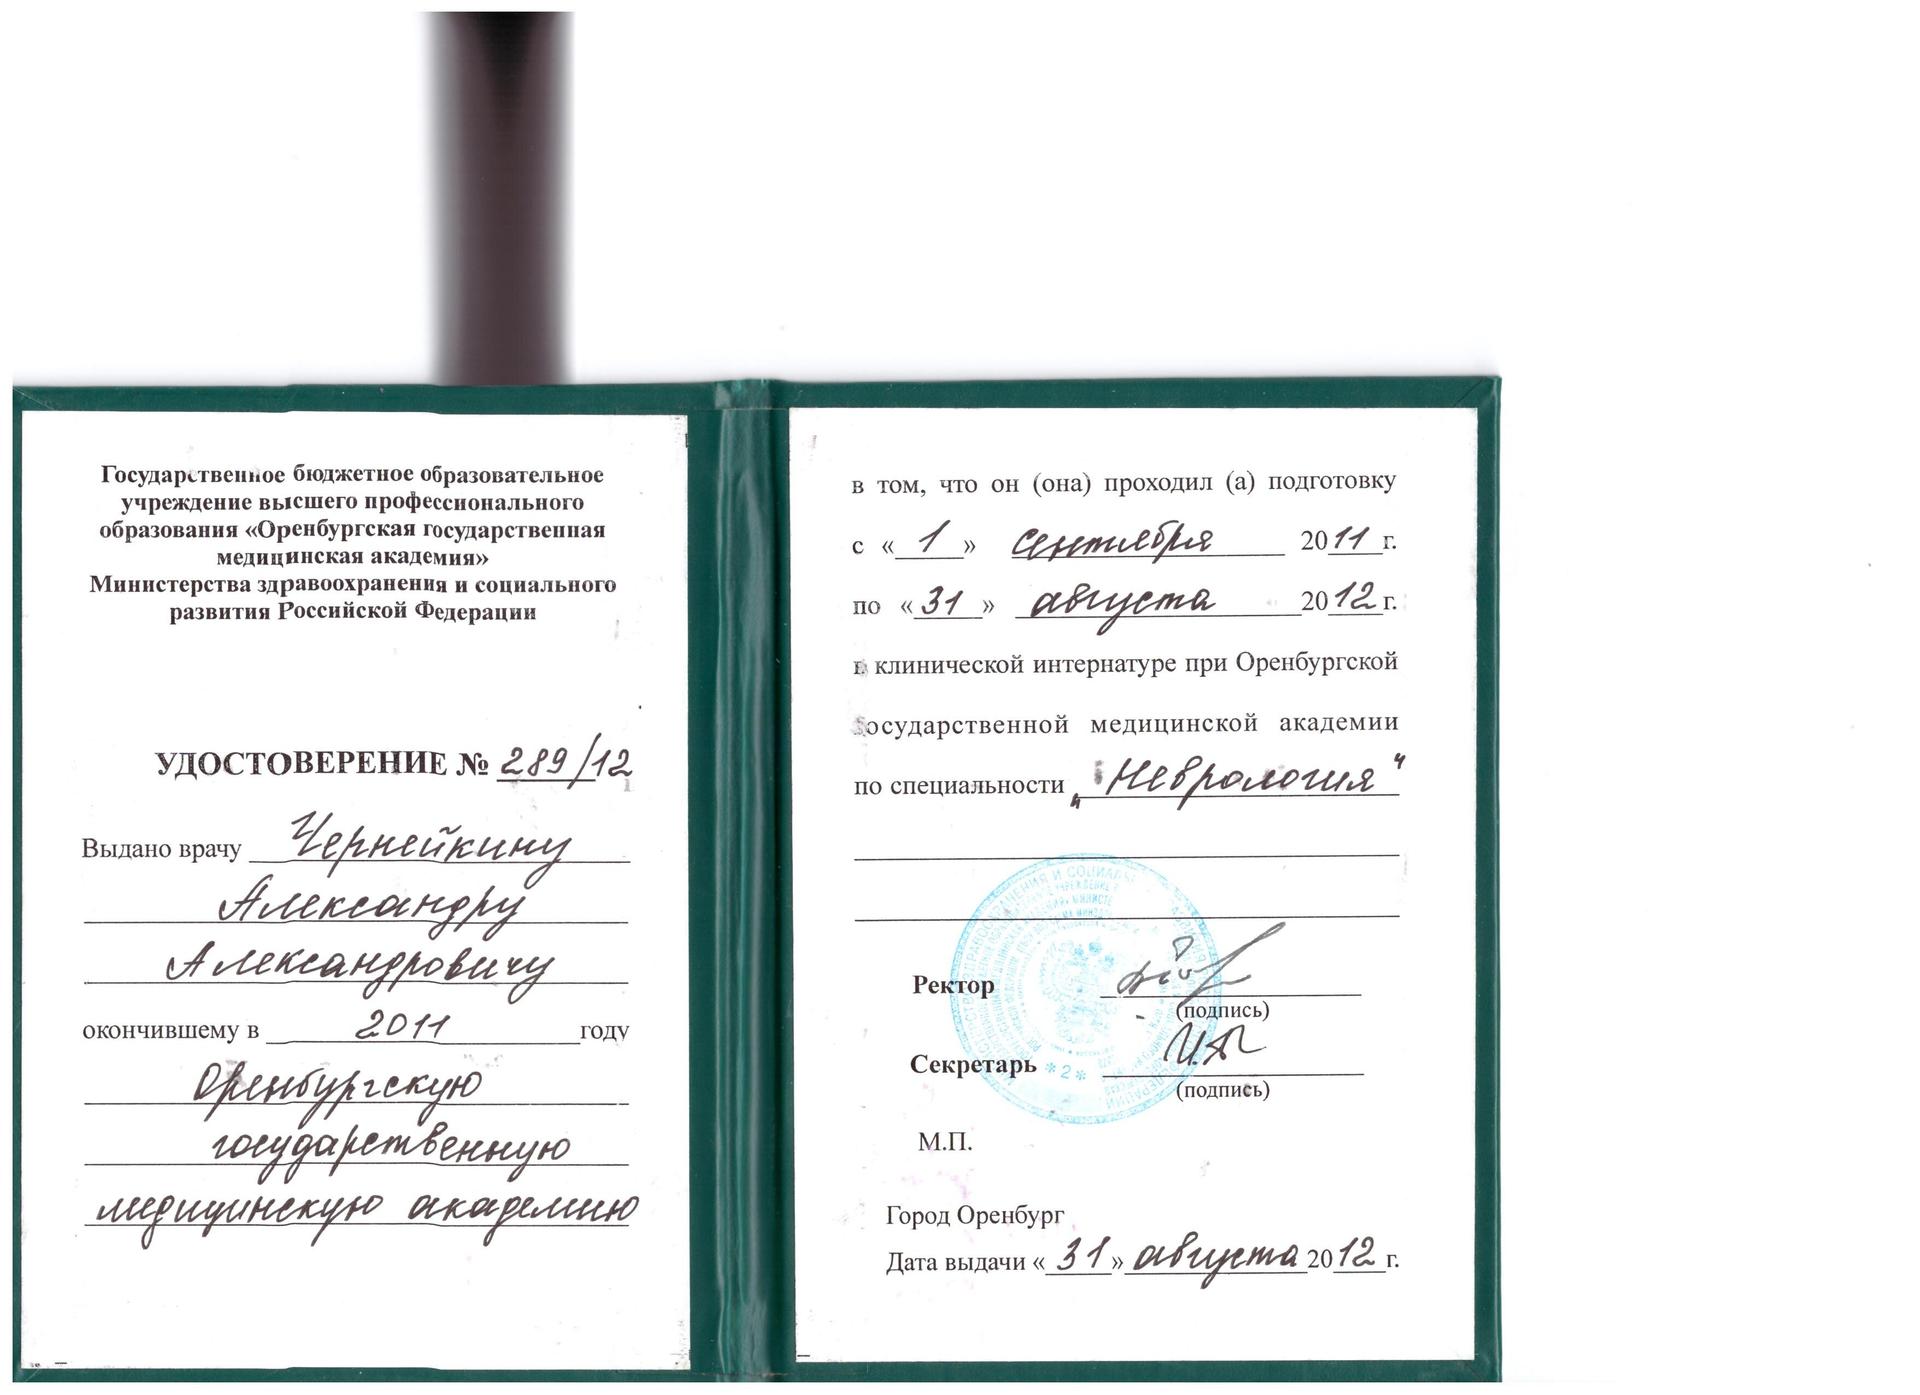 Государственное бюджетное образовательное
учреждение высшего профессионального
образования «Оренбургская государственная
медицинская академия»
Министерства здравоохранения и социального
развития Российской Федерации
УДОСТОВЕРЕНИЕ № 289/12
Выдано врачу Чернейкину
Александру
Александровичу
окончившему в 2011 году
Оренбургскую
государственную
медицинскую академию
в том, что он (она) проходил (а) подготовку
с «1» сентября 2011 г.
по «31» августа 2012 г.
в клинической интернатуре при Оренбургской
государственной медицинской академии
по специальности „Неврология"
Ректор
(подпись)
Секретарь *2*
(подпись)
М.П.
Город Оренбург
Дата выдачи «31» августа 2012 г.